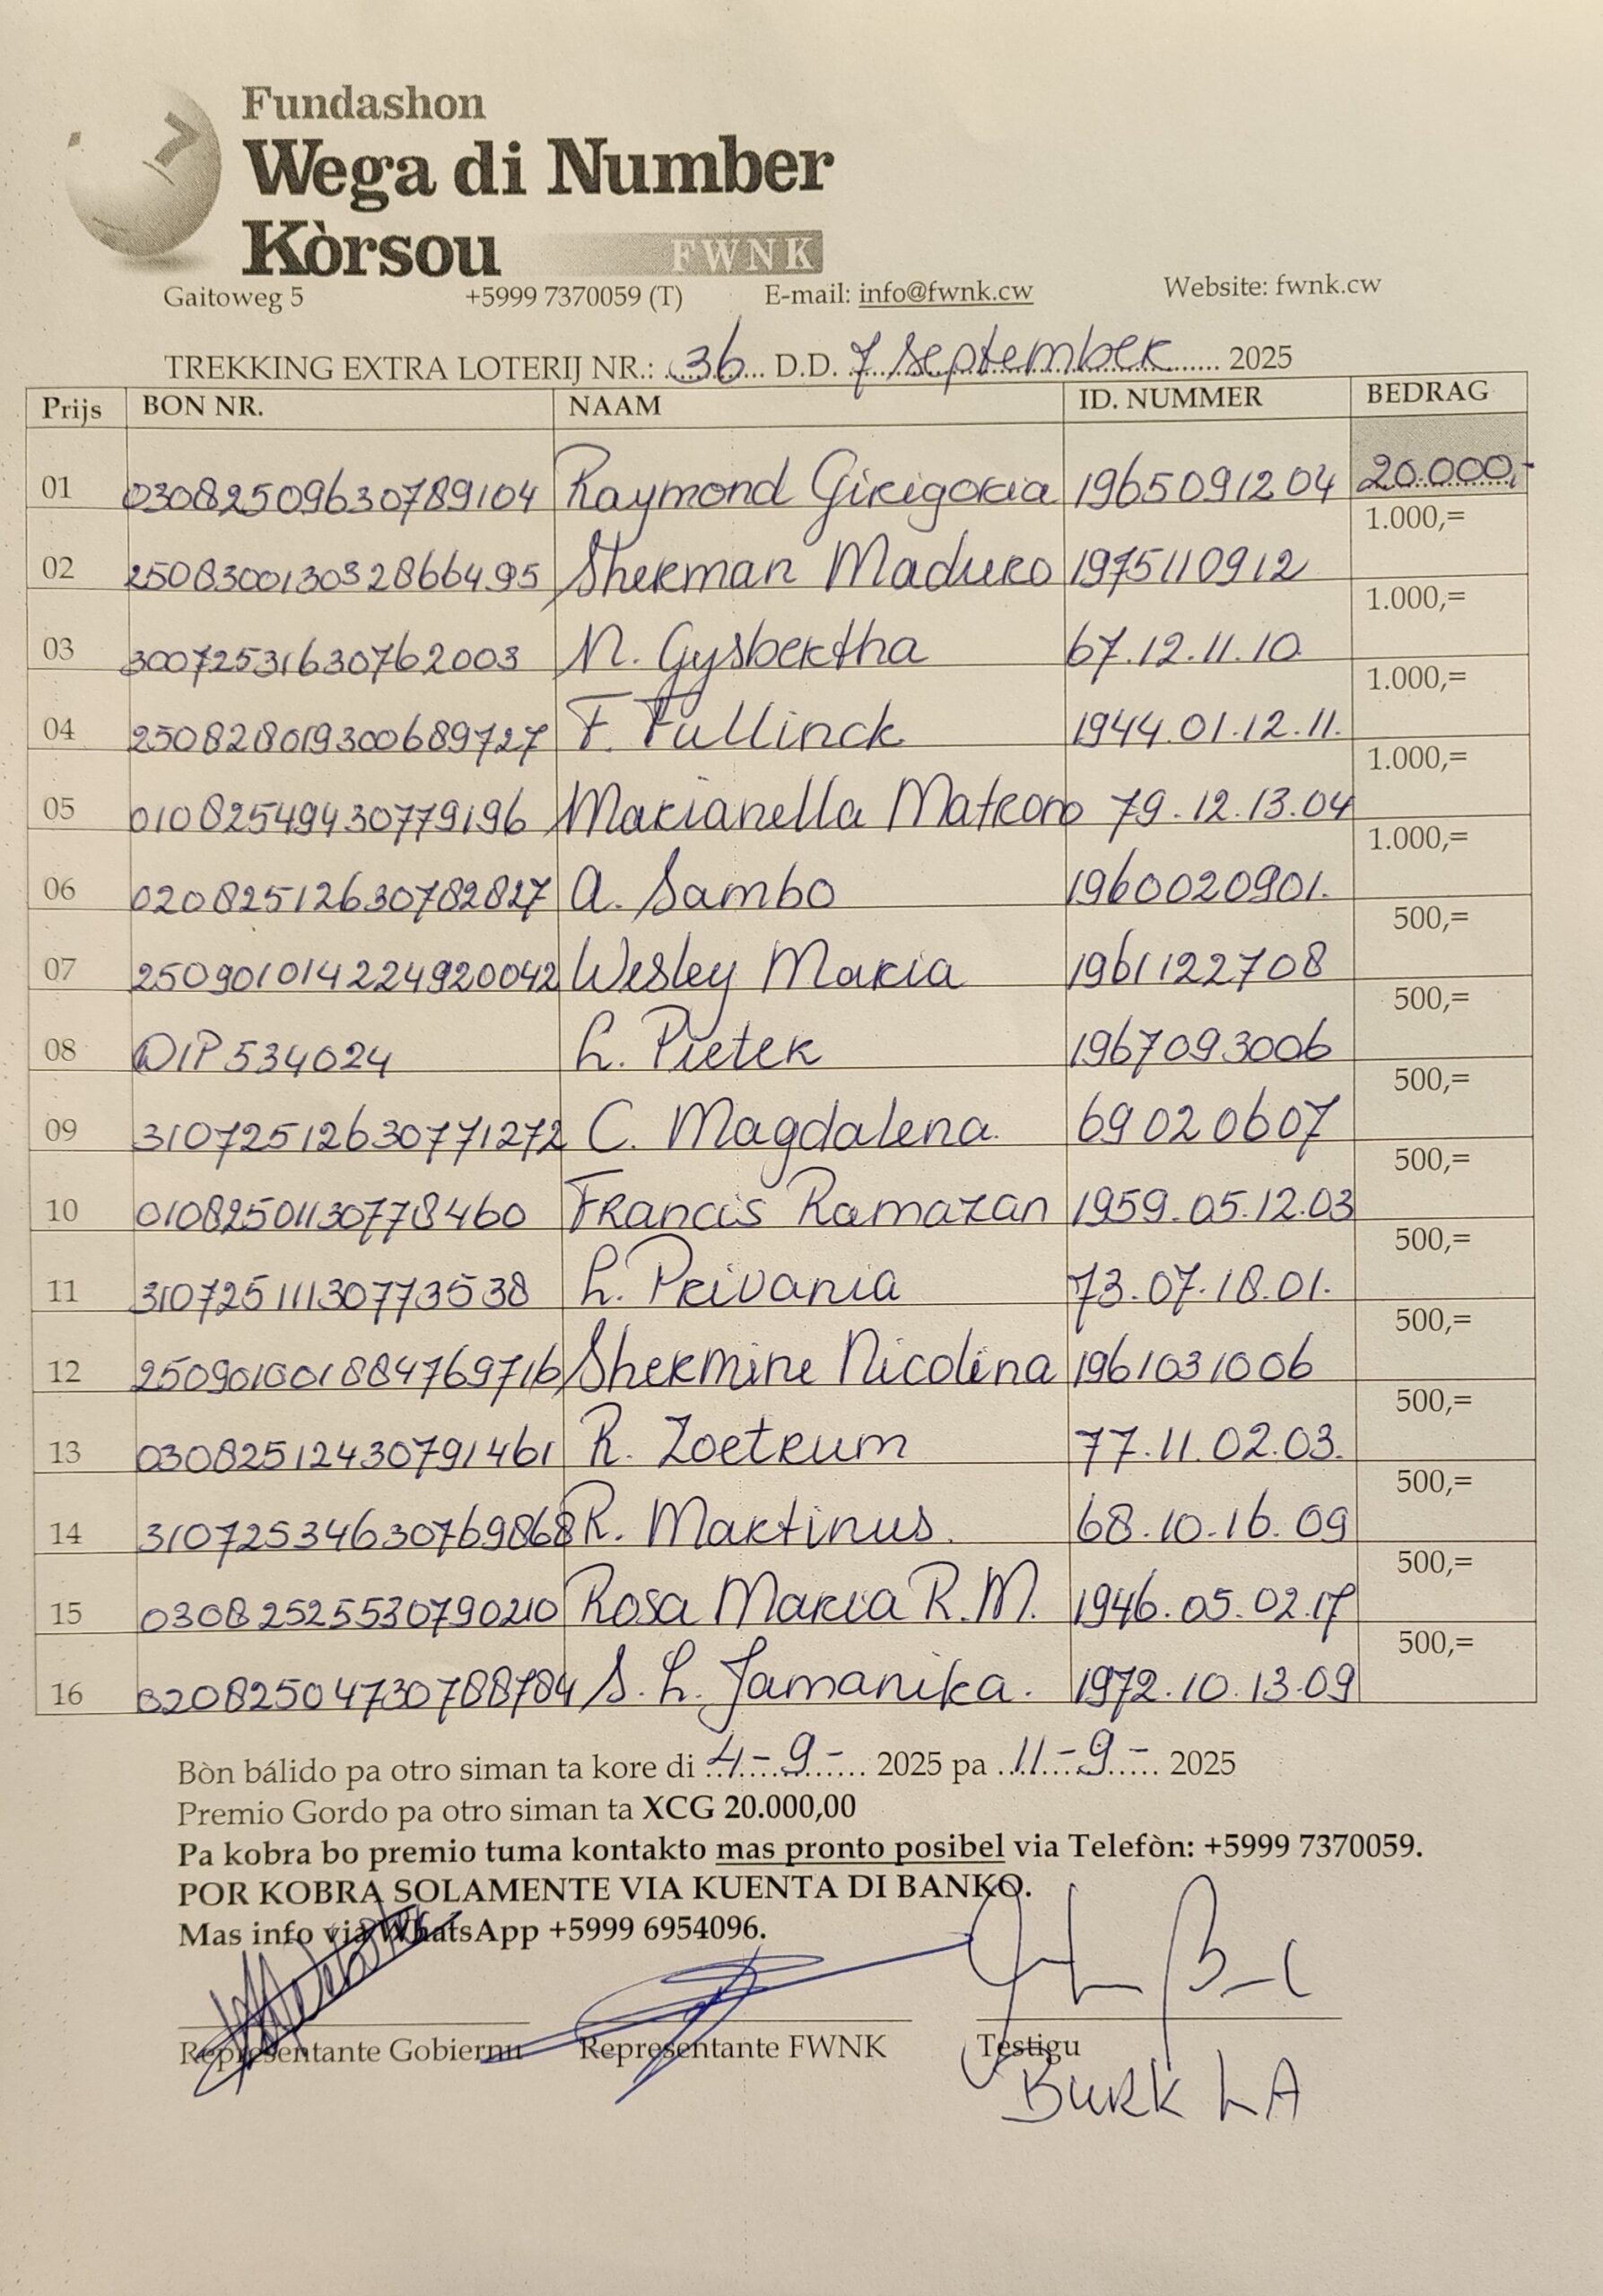 Fundashon
Wega di Number
Kòrsou FWNK
Gaitoweg 5 +5999 7370059 (T) E-mail: info@fwnk.cw Website: fwnk.cw
TREKKING EXTRA LOTERIJ NR.: 36 D.D. 7 September 2025
Prijs BON NR. NAAM ID. NUMMER BEDRAG
01 03082509630789104 Raymond Girigoria 1965091204 20.000,-
1.000,=
02 2508300130328664 95 Sherman Maduro 1975110912
1.000,=
03 30072531630762003 N. Gysbertha 67.12.11.10
1.000,=
04 250828019300689727 F. Fullinck 1944.01.12.11.
1.000,=
05 01082549430779196 Marianella Matrona 79.12.13.04
1.000,=
06 02082512630782827 A. Sambo 1960020901.
500,=
07 250901014224920042 Wesley Maria 1961122708
500,=
08 DIP534024 L. Pieter 1967093006
500,=
09 31072512630771272 C. Magdalena. 69020607
500,=
10 01082501130778460 Francis Ramazan 1959.05.12.03
500,=
11 31072511130773538 L. Privania 73.07.18.01.
500,=
12 250901001884769716 Shermine Nicolina 1961031006
500,=
13 03082512430791461 R. Zoetrum 77.11.02.03.
500,=
14 31072534630769868 R. Martinus. 68.10.16.09
500,=
15 03082525530790210 Rosa Maria R.M. 1946.05.02.17
500,=
16 02082504730788784 S.L. Jamanika. 1972.10.13.09
Bòn bálido pa otro siman ta kore di 4-9- 2025 pa 11-9- 2025
Premio Gordo pa otro siman ta XCG 20.000,00
Pa kobra bo premio tuma kontakto mas pronto posibel via Telefòn: +5999 7370059.
POR KOBRA SOLAMENTE VIA KUENTA DI BANKO.
Mas info via WhatsApp +5999 6954096.
Representante Gobiernu Representante FWNK Testigu
BURK LA